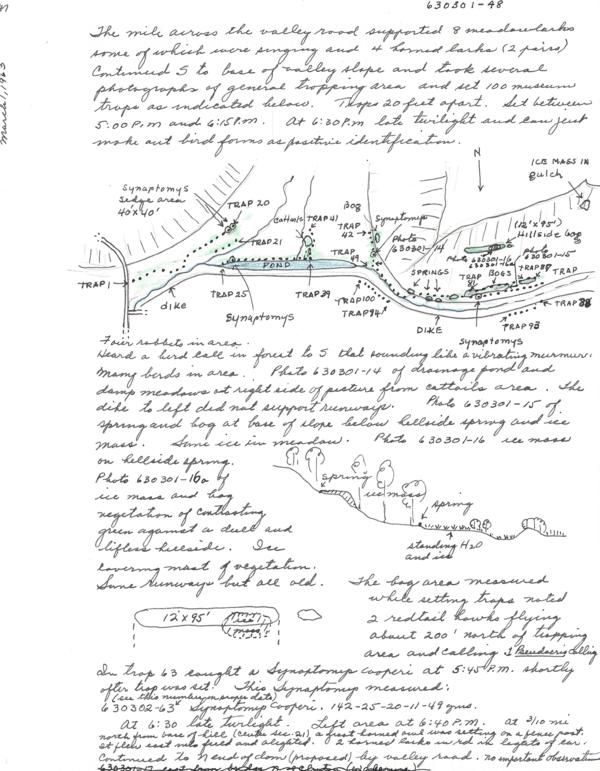 47
630301-48
March 1, 1963
The mile across the valley road supported 8 meadowlarks
some of which were singing and 4 horned larks (2 pairs)
Continued S to base of valley slope and took several
photographs of general trapping area and set 100 museum
traps as indicated below. Traps 20 feet apart. Set between
5:00 P.M and 6:15 P.M. At 6:30 P.M late twilight and can just
make out bird forms as positive identification.
N
ICE MASS IN
Gulch
Synaptomys
Sedge area
40'x40'
TRAP 20
TRAP 21
Cattails
TRAP 41
BOG
TRAP
42
Synaptomys
Photo
630301-14
(12'x95')
Hillside bog
Photo 630301-16
630301-16a
Photo
630301-15
TRAP 1
POND
TRAP
49
SPRINGS
TRAP
81
BOGS
TRAP 88
TRAP
dike
TRAP 25
Synaptomys
TRAP 39
TRAP 100
TRAP 94
DIKE
Synaptomys
TRAP 93
TRAP
Four rabbits in area.
Heard a bird call in forest to S that sounding like a vibrating murmur.
Many birds in area. Photo 630301-14 of drainage pond and
damp meadows at right side of picture from cattails area. The
dike to left did not support runways. Photo 630301-15 of
spring and bog at base of slope below hillside spring and ice
mass. Some ice in meadow. Photo 630301-16 ice mass
on hillside spring.
Photo 630301-16a of
ice mass and bog
vegetation of contrasting
green against a dull and
lifeless hillside. Ice
covering most of vegetation.
Some runways but all old.
spring
ice mass
spring
standing H2O
and ice
12'x95'
ice
mass
The bog area measured
while setting traps noted
2 redtail hawks flying
about 200' north of trapping
area and calling 1 Pseudacris calling
In trap 63 caught a Synaptomys cooperi at 5:45 P.M. shortly
after trap was set. This Synaptomys measured:
(see this number on proper date)
630302-63 Synaptomys Cooperi. 142-25-20-11-49 gms.
At 6:30 late twilight. Left area at 6:40 P.M. at 3/10 mi
north from base of hill (centre sec. 21) a great horned owl was setting on a fence post.
It flew east into field and alighted. 2 horned larks in rd in lights of car.
Continued to N end of dam (proposed) by valley road. no important observation